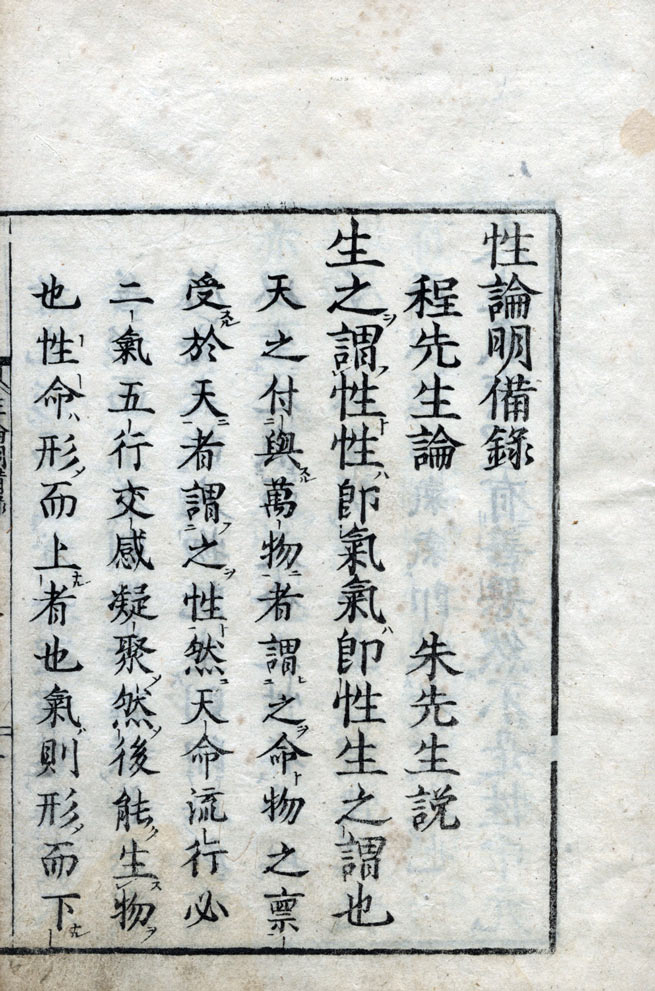 性論明備錄
程先生論 朱先生説
生之謂性性即氣氣即性生之謂也
天之付與萬物者謂之命物之禀
受於天者謂之性然天命流行必
二氣五行交感凝聚然後能生物
也性命形而上者也氣則形而下